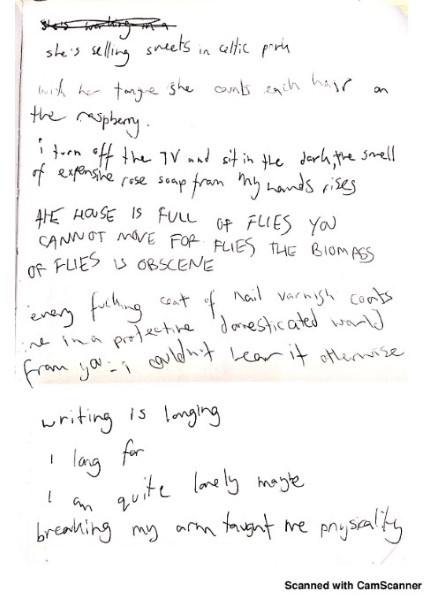 she's working in a
she's selling sweets in celtic park
with her tongue she counts each hair on
the raspberry.
i turn off the TV and sit in the dark, the smell
of expensive rose soap from my hands rises
THE HOUSE IS FULL OF FLIES YOU
CANNOT MOVE FOR FLIES THE BIOMASS
OF FLIES IS OBSCENE
every fucking coat of nail varnish coats
me in a protective domesticated world
from you - i couldn't bear it otherwise
writing is longing
I long for
I am quite lonely maybe
breaking my arm taught me physicality
Scanned with CamScanner